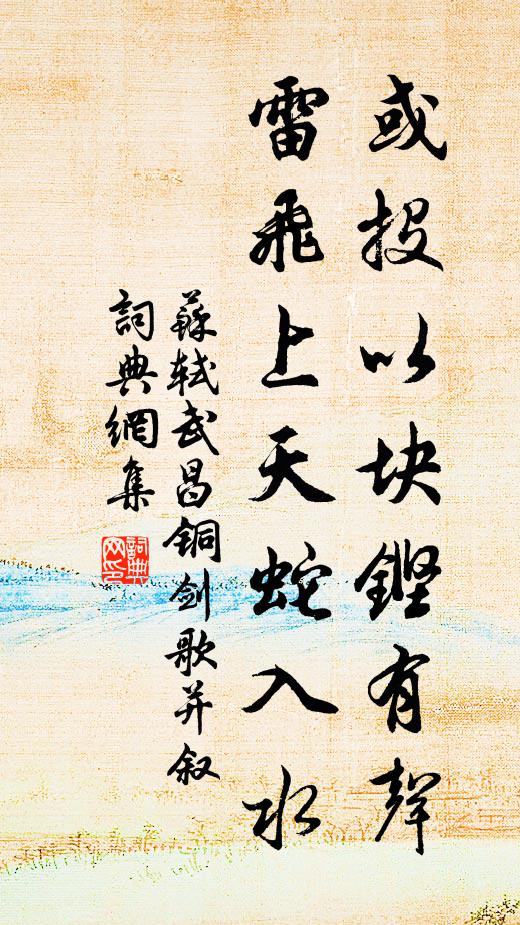 或投以块鏗有聲
雷飛上天蛇入水
蘇轼武昌铜剑歌并叙
詞典網集
詞典网印